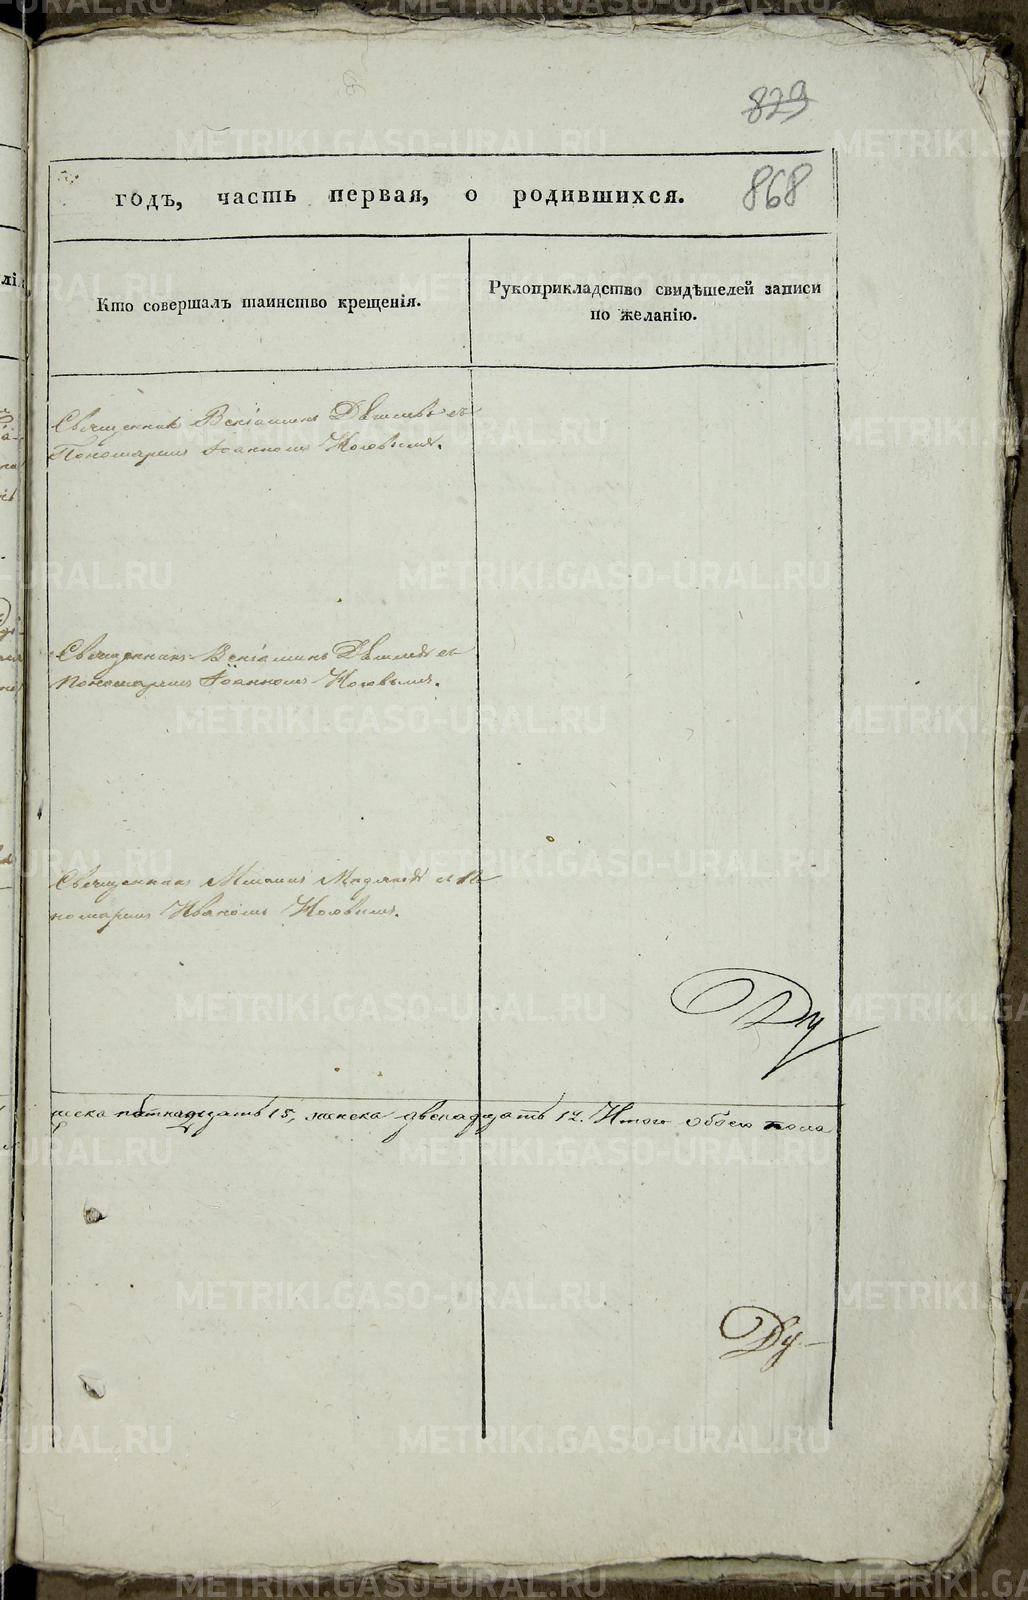 829
868
годъ, часть первая, о родившихся.
Кто совершалъ таинство крещенія.
Рукоприкладство свидѣтелей записи
по желанію.
Священникъ Веніаминъ съ
Пономаремъ Іоанномъ
Священникъ Веніаминъ съ
Пономаремъ Іоанномъ
Священникъ съ По
номаремъ Иваномъ
Ду
жеска пятнадцать 15, женска двенадцать 12. Итого обоего пола
Ду
METRIKI.GASO-URAL.RU